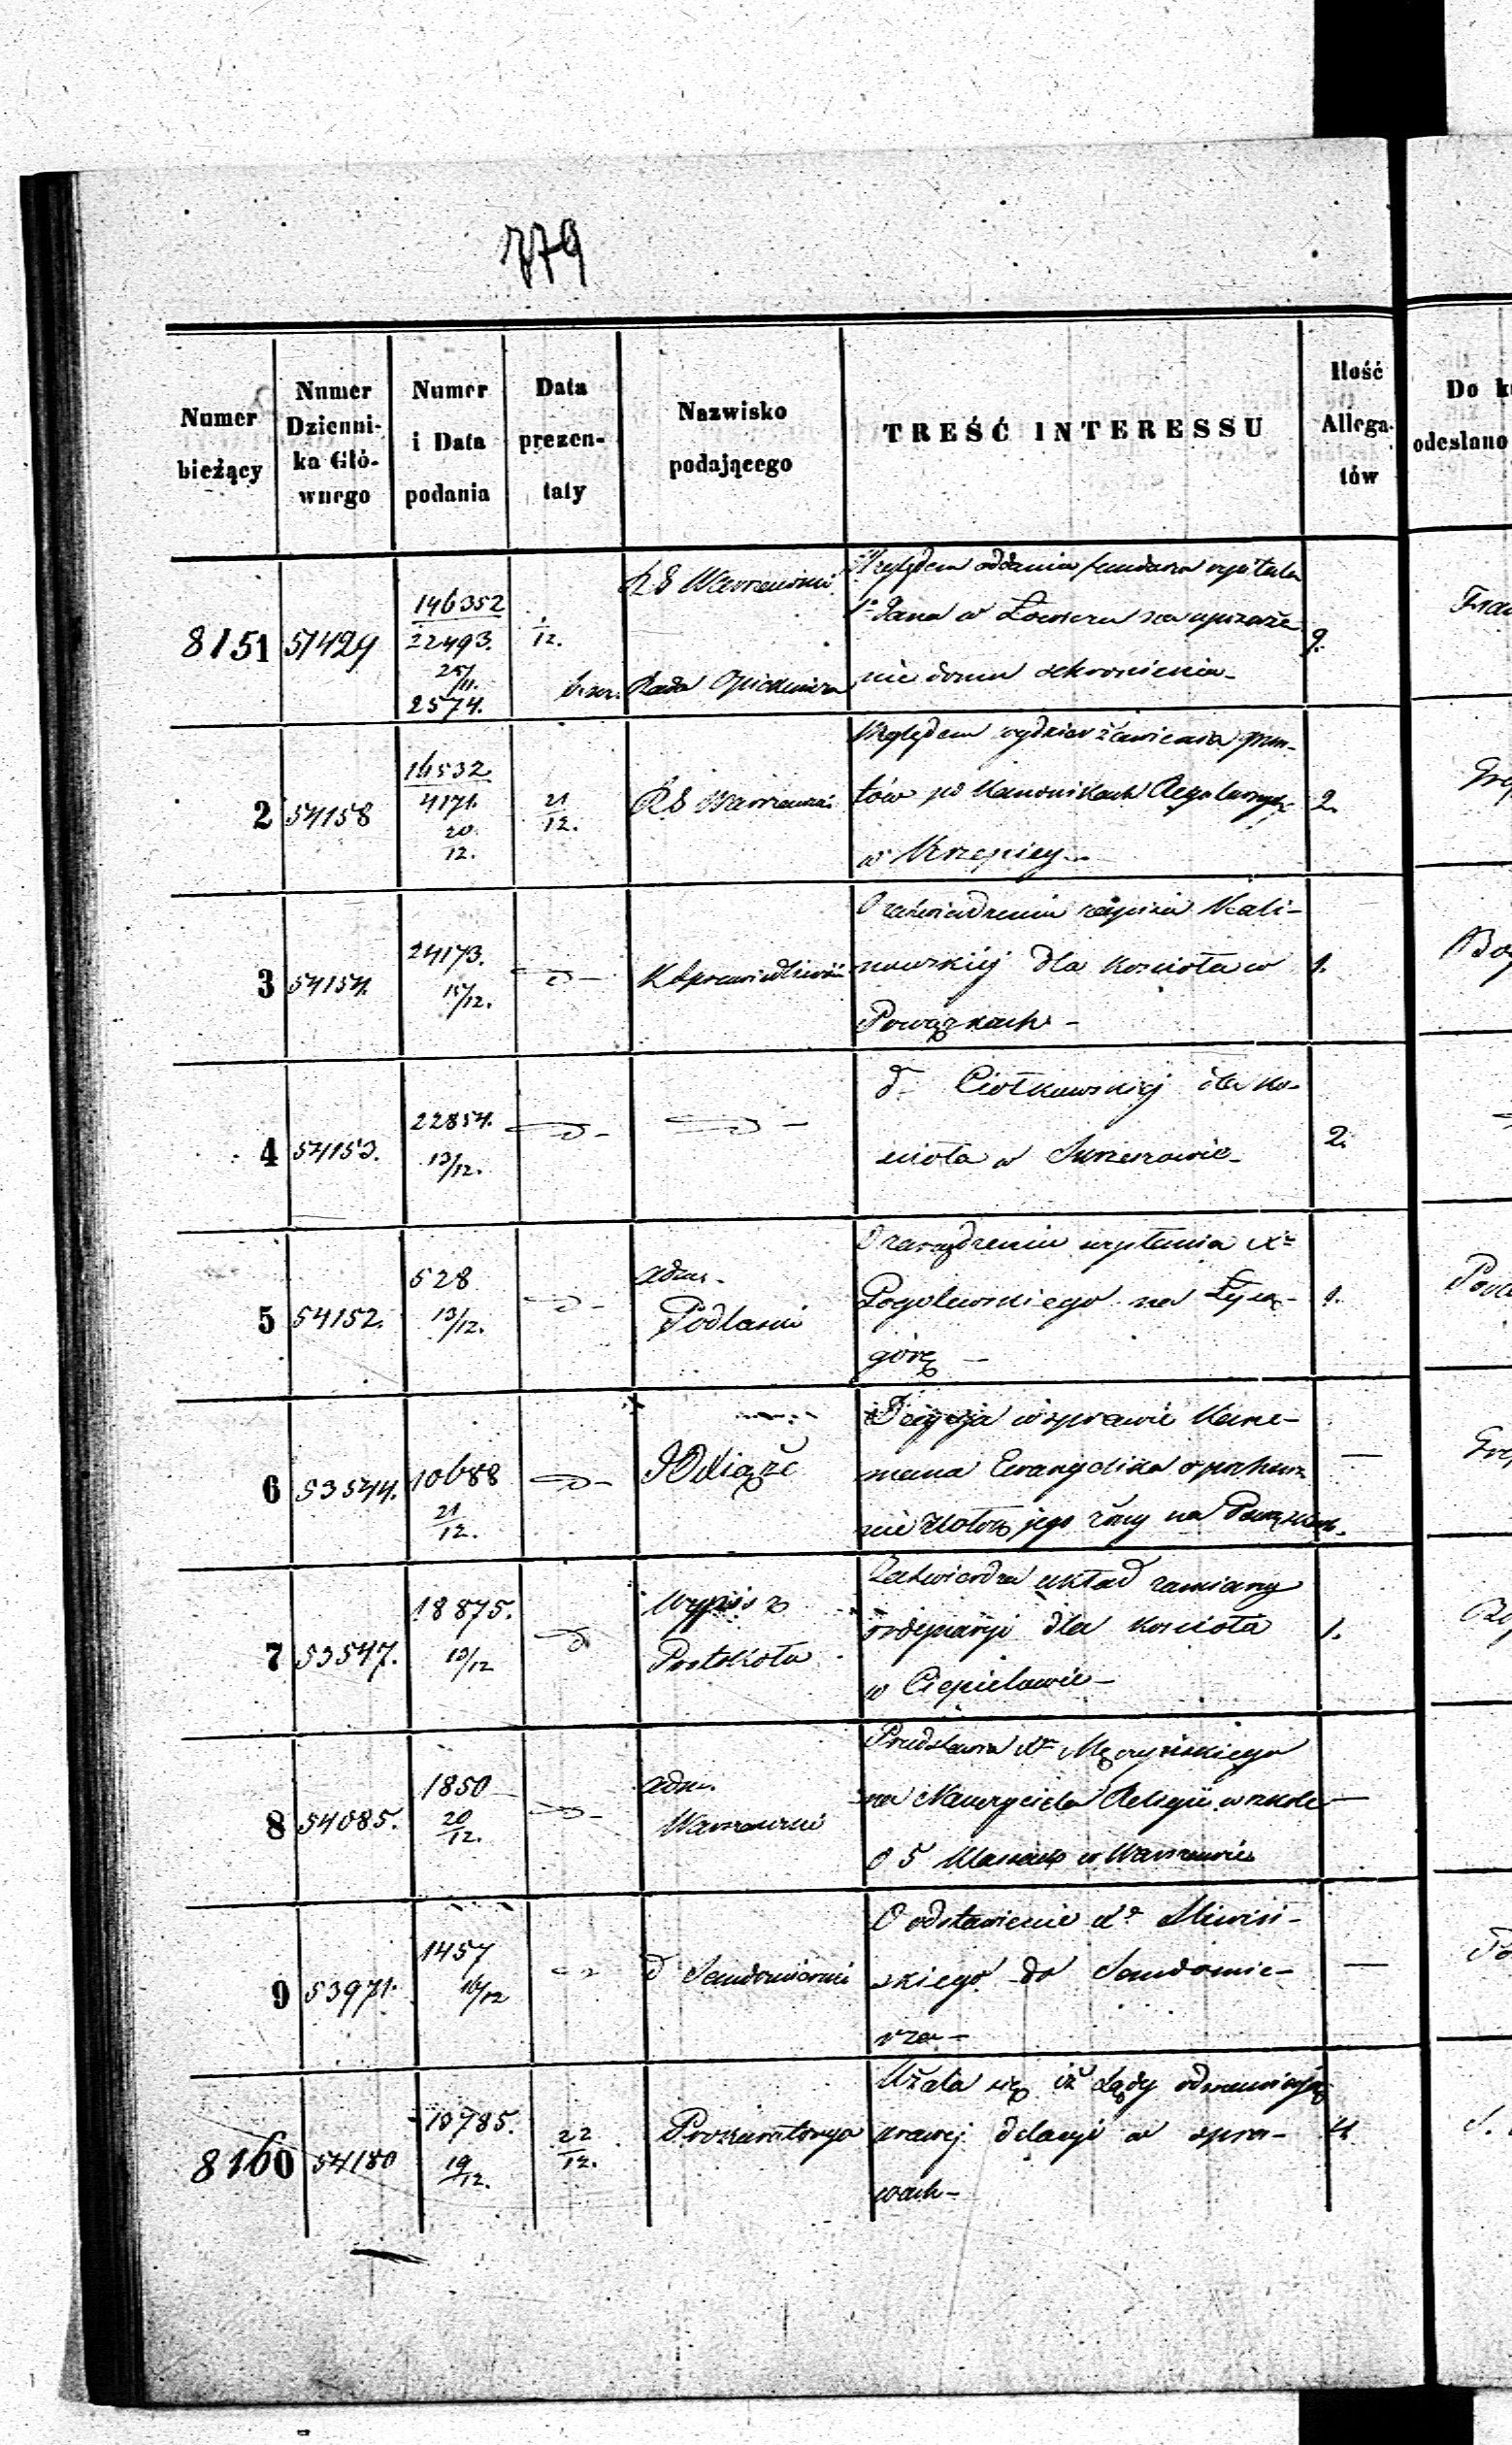 779
Numer bieżący
Numer Dzienni- ka Głó- wnego
Numer i Data podania
Data prezen- taty
Nazwisko podającego
TREŚĆ INTERESSU
Ilość Allega- tów
Do k
odesłano
8151 51429
146352
22493.
25/11.
2574.
1/12.
RG Warszawski
Rada Opiekuńcza
Względem oddania funduszu szpitala
Sgo Jana w Łowiczu na
nie domu schronienia
9.
2 54158
16532
4171.
20
12.
21
12.
RG Warszawski
Względem wydzierżawienia grun-
tów po Kanonikach Regularnych
w Krzepicy
2.
3 54154.
24173.
15/12.
d
K Sprawiedliwości
O zatwierdzenie zapisu Kali-
nowskiej dla Kościoła w
Powązkach
1.
4 54153.
22854.
13/12.
d
d
d Ciołkowskiej dla Ko-
ścioła w
2.
5 54152.
528
13/12.
d
Adm.
Podlaski
O zarządzenie wysłania Xa
na Łysą
górę
1.
6 53544.
10688
21
12.
d
JO Książe
Decyzja w sprawie
Ewangelika o
nie zwłok jego żony na Powązkach
7 53547.
18875.
13/12
d
Wypis z
Protokołu
Zatwierdza układ zamiany
ordynaryi dla kościoła
w Ciepielowie
1.
8 54085.
1850
20
12.
d
Adm.
Warszawski
Przedstawia Xa Męczyńskiego
na Nauczyciela Religii w szkole
O 5 Klassach w Warszawie
9 53971.
1457
16/12
d
d Sandomierski
O odstawienie Xa
skiego do Sandomie-
rza
8160 54180
10785.
19
12.
22
12.
Prokuratorya
Użala się iż Sądy odmawiają
delacyi w spra-
wach
4